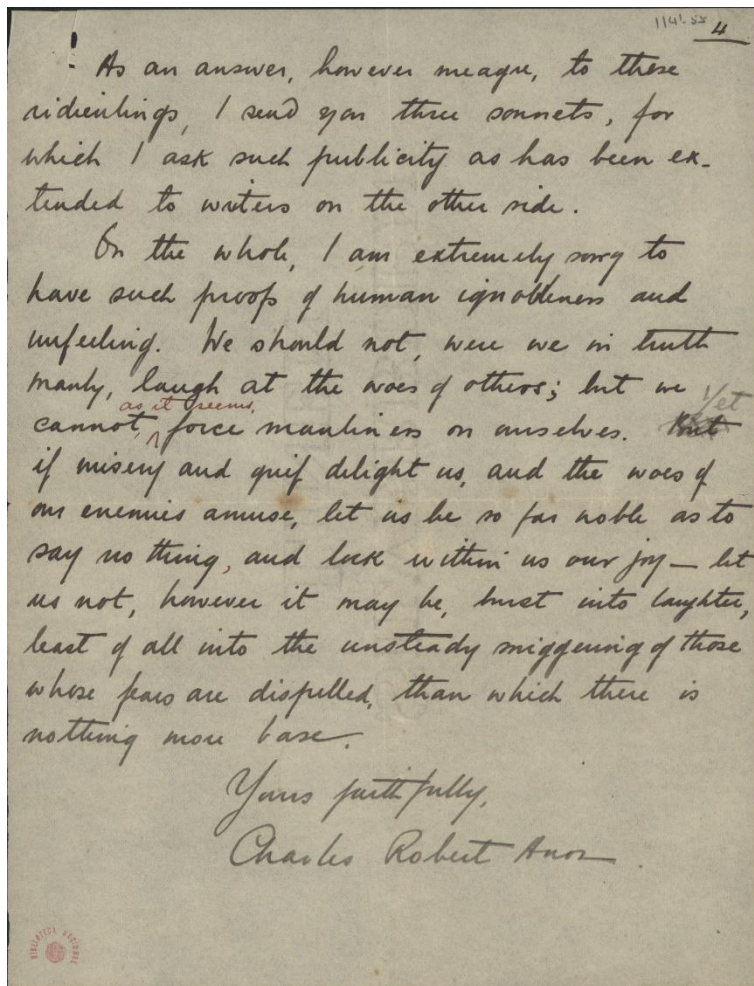 114¹-55
4
As an answer, however meagre, to these
ridiculings, I send you three sonnets, for
which I ask such publicity as has been ex-
tended to writers on the other side.
On the whole, I am extremely sorry to
have such proofs of human ignobleness and
unfeeling. We should not, were we in truth
manly, laugh at the woes of others; but we
as it seems,
cannot, force manliness on ourselves. But Yet
if misery and grief delight us, and the woes of
our enemies amuse, let us be so far noble as to
say nothing, and lock within us our joy — let
us not, however it may be, burst into laughter,
least of all into the unsteady sniggering of those
whose fears are dispelled, than which there is
nothing more base.
Yours faithfully,
Charles Robert Anon.
BIBLIOTECA NACIONAL